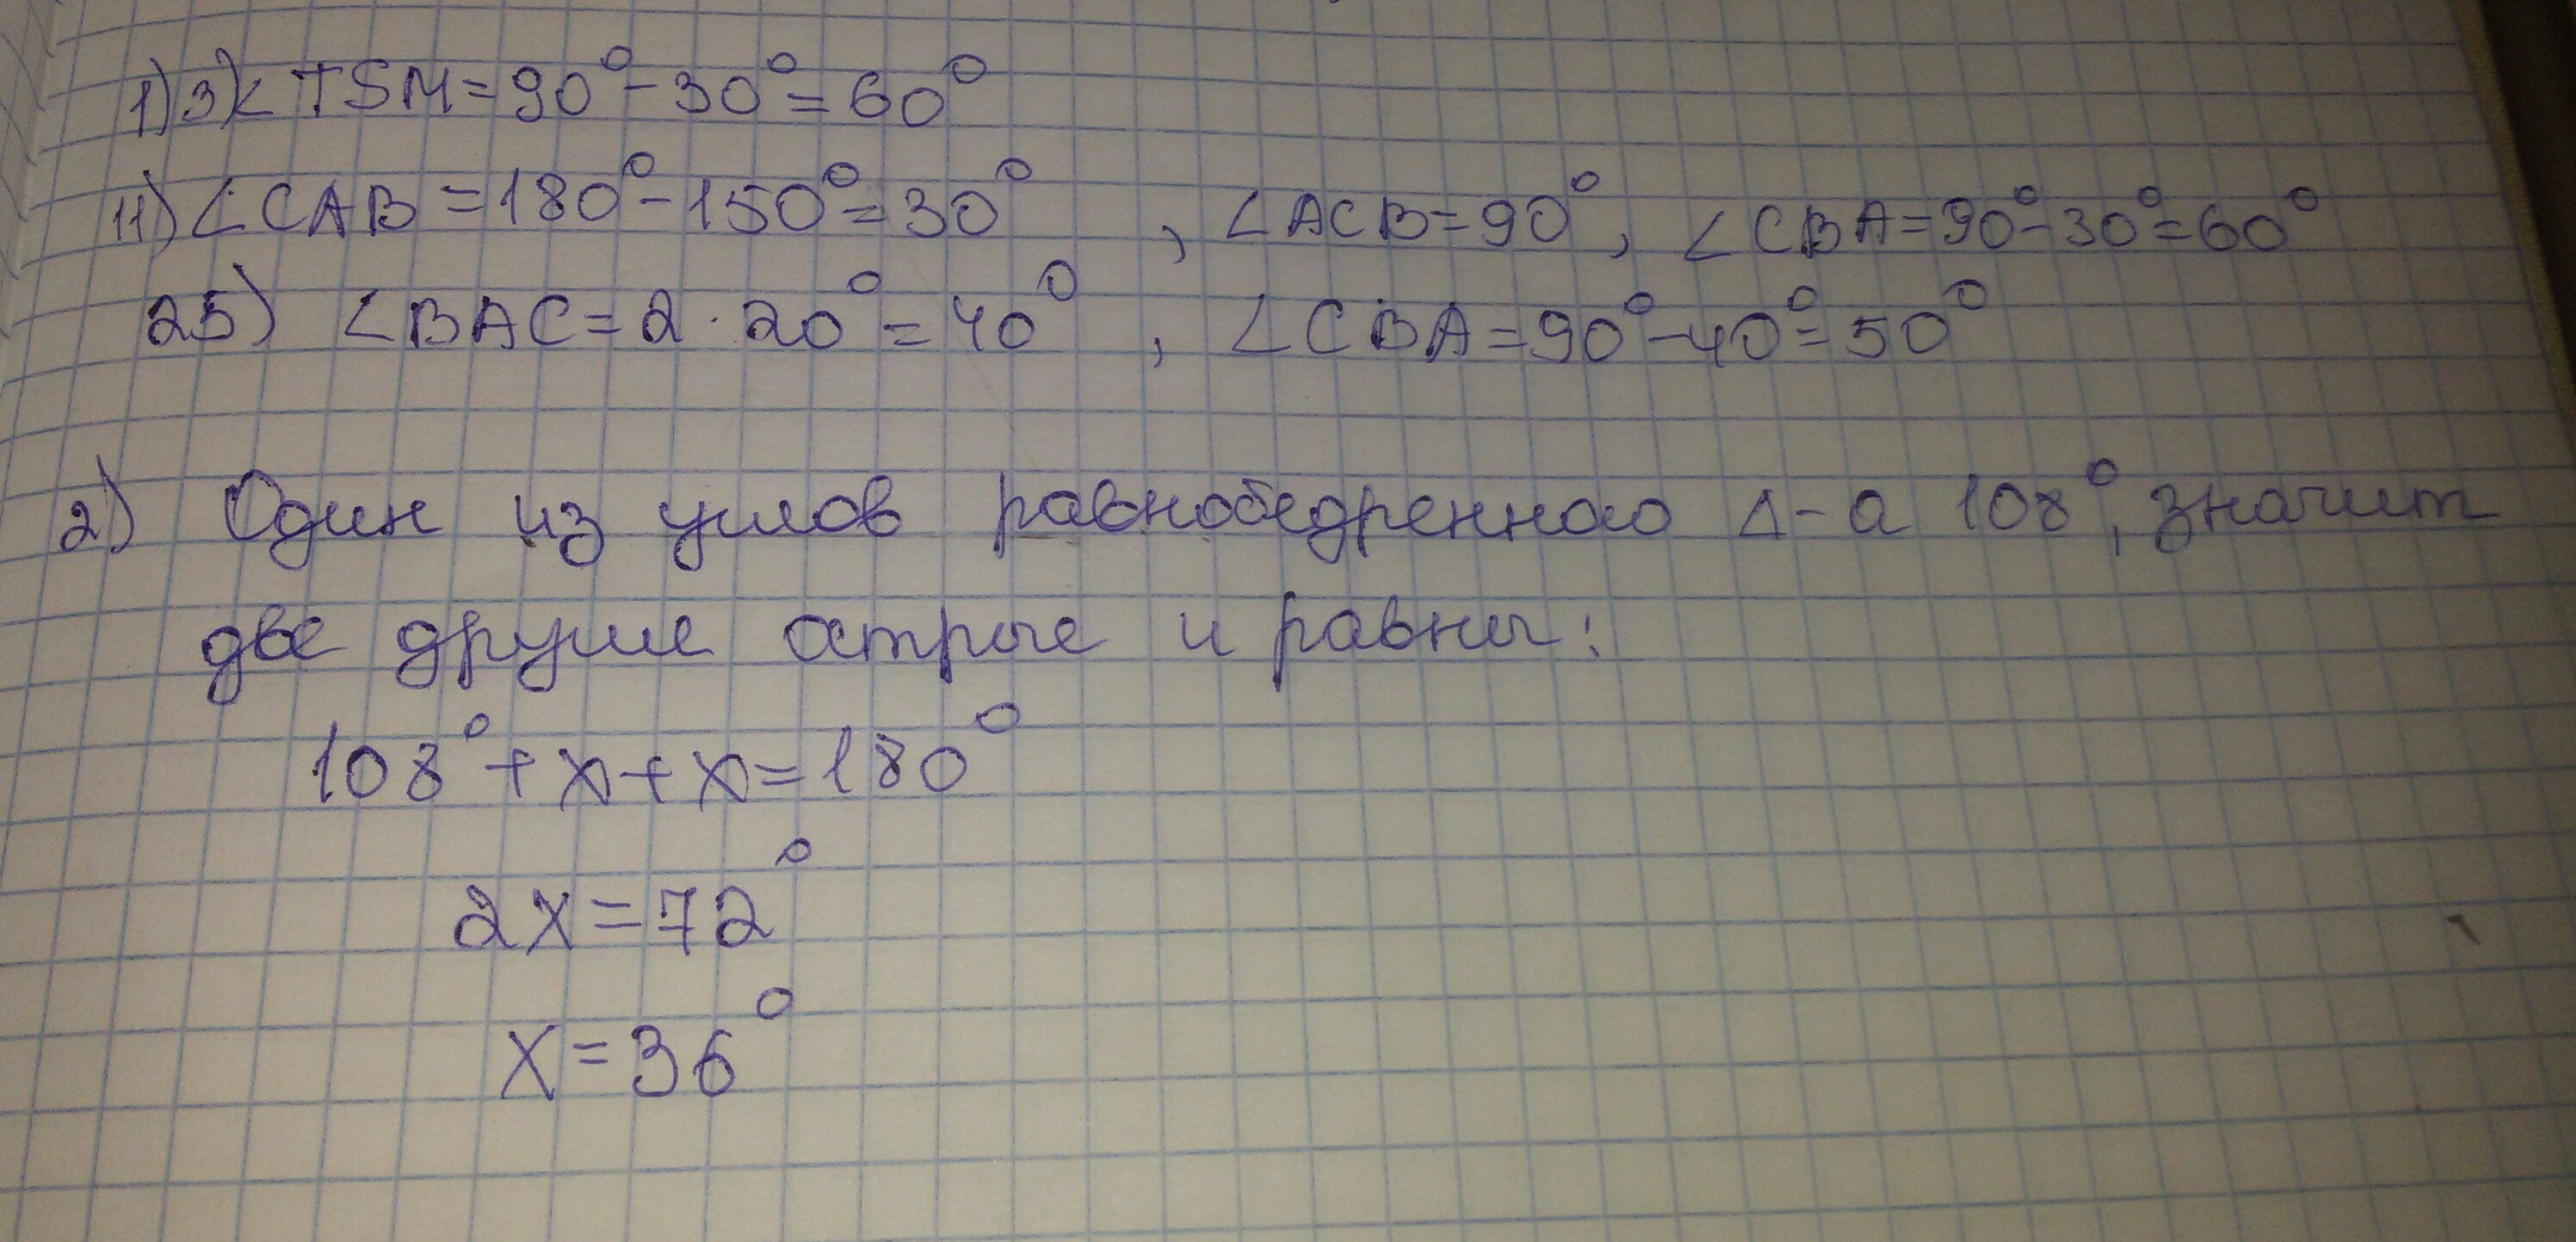 1) 3) ∠TSM = 90° - 30° = 60°
11) ∠CAB = 180° - 150° = 30° , ∠ACB = 90° , ∠CBA = 90° - 30° = 60°
25) ∠BAC = 2 · 20° = 40° , ∠CBA = 90° - 40° = 50°
2) Один из углов равнобедренного Δ-а 108°, значит
две другие острые и равны:
108° + x + x = 180°
2x = 72°
x = 36°